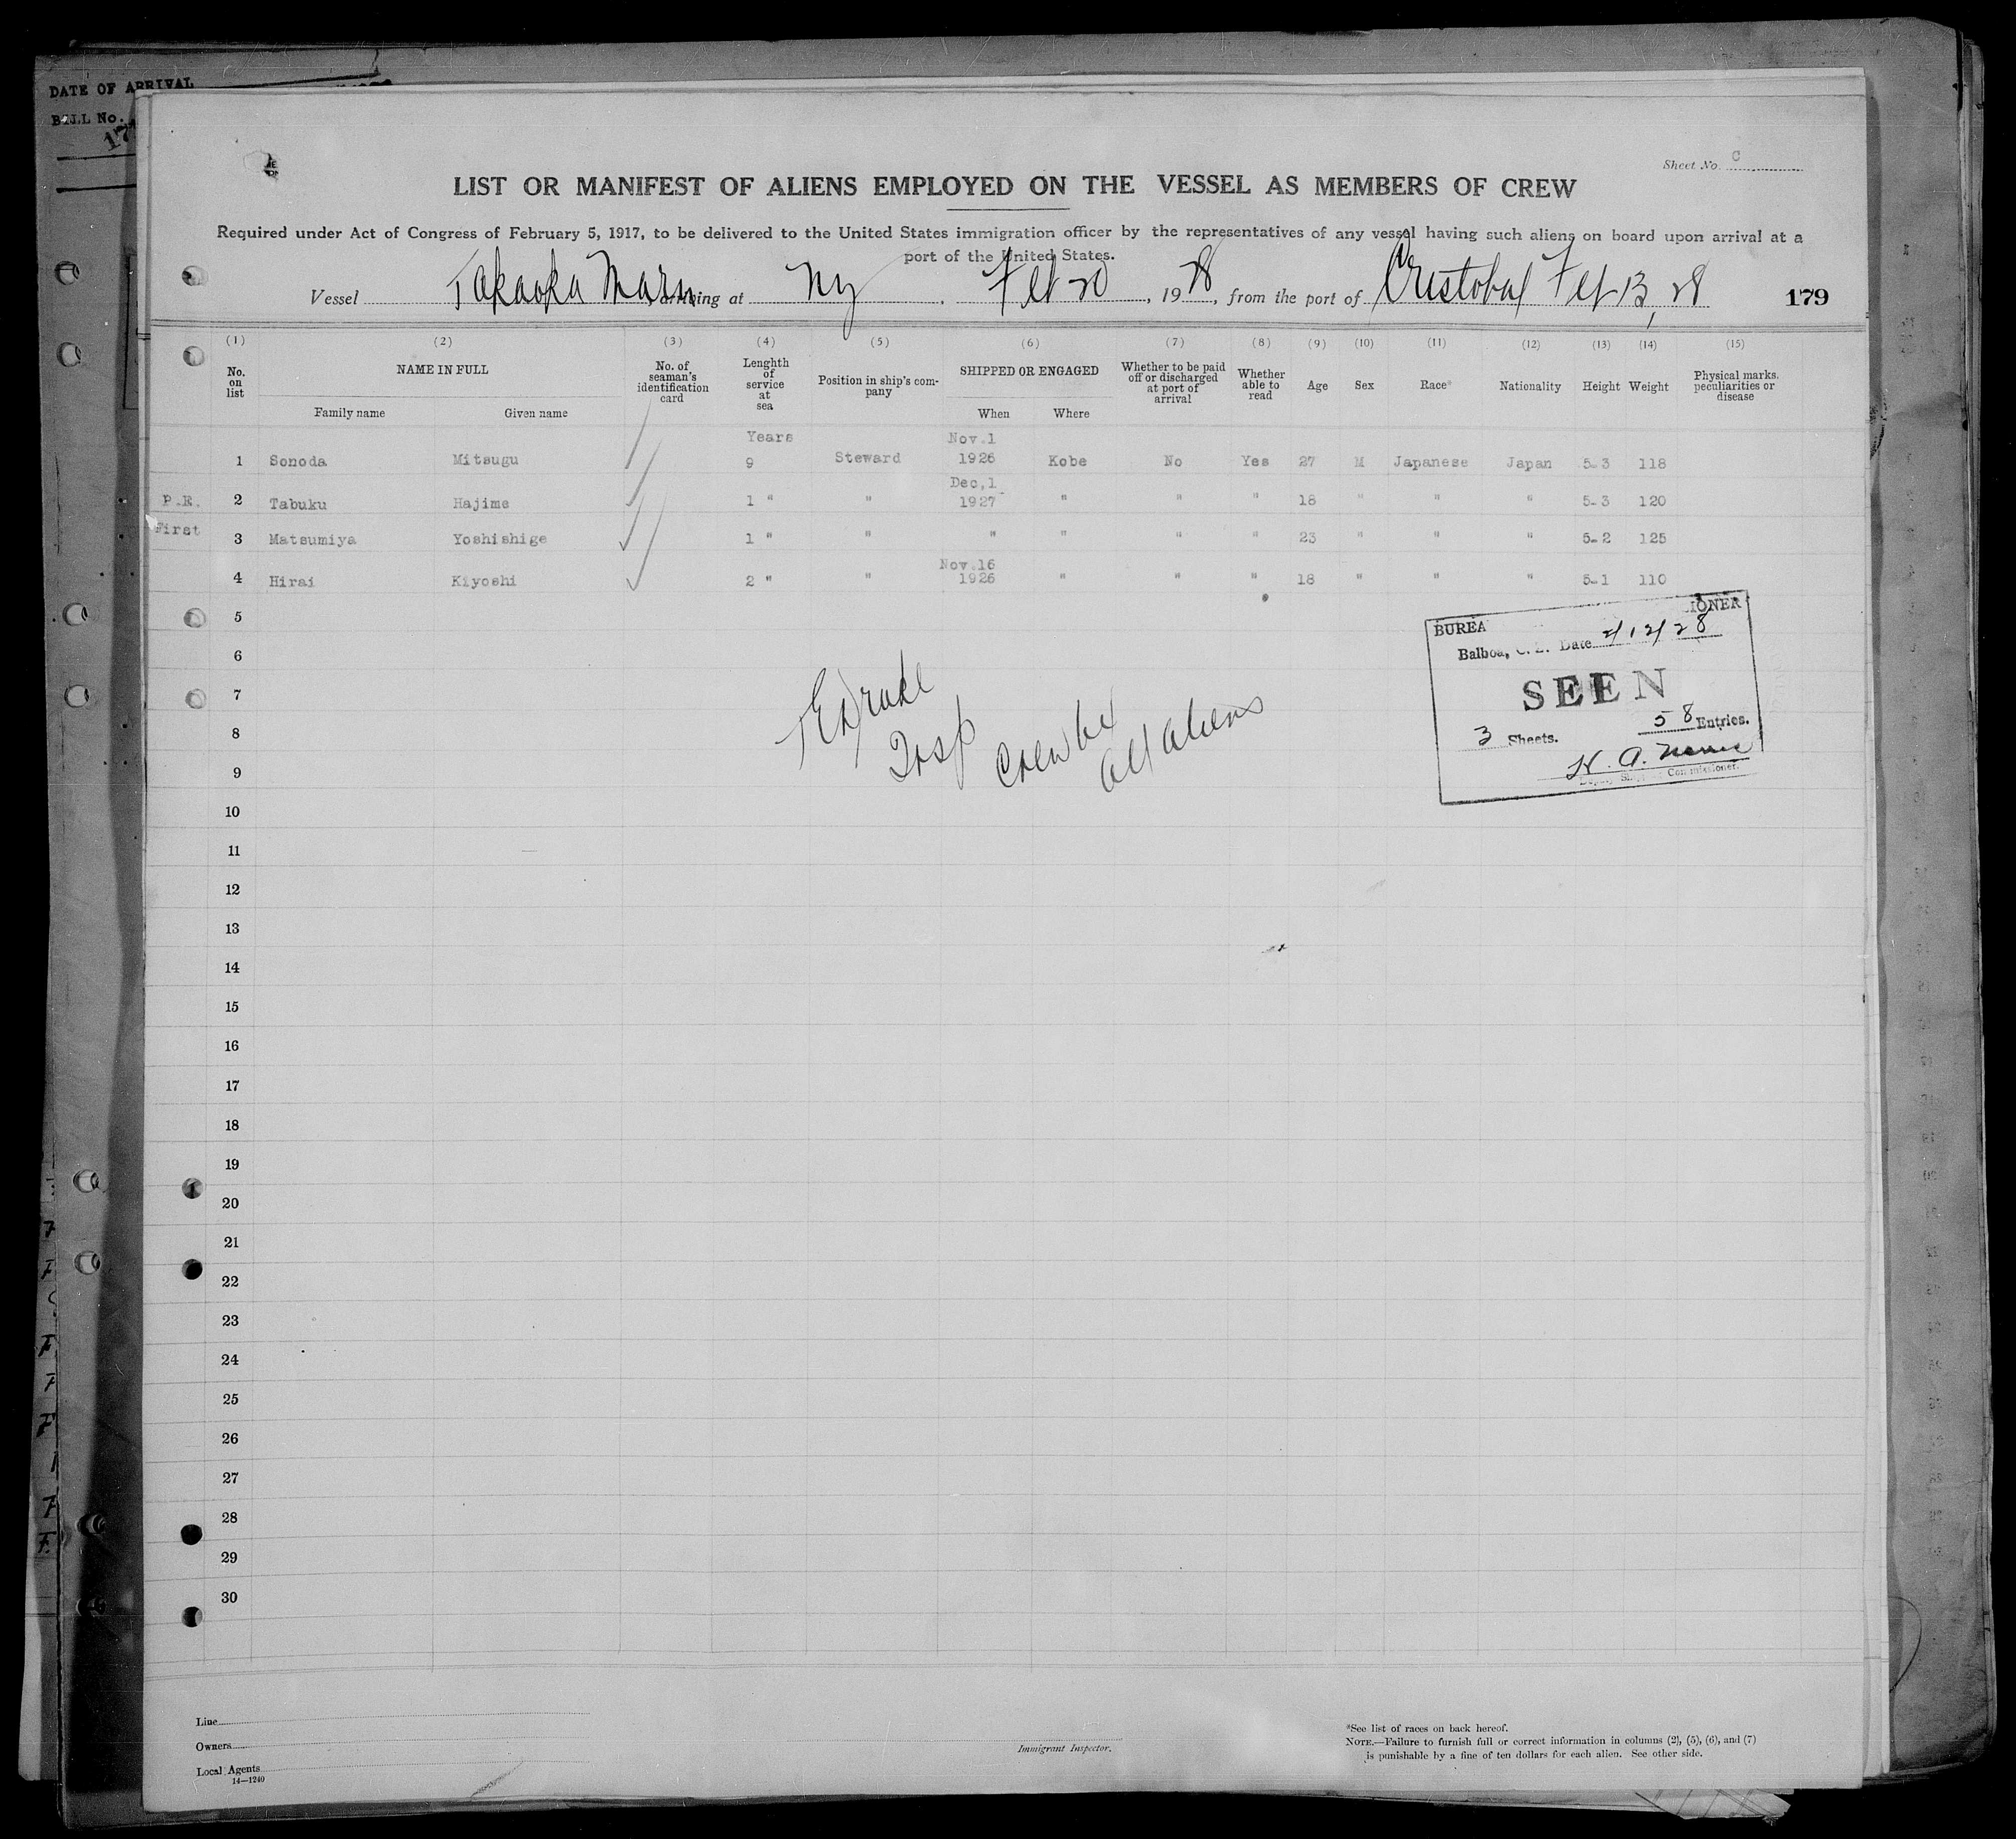 DATE OF ARRIVAL
BILL No.
Sheet No. C
LIST OR MANIFEST OF ALIENS EMPLOYED ON THE VESSEL AS MEMBERS OF CREW
Required under Act of Congress of February 5, 1917, to be delivered to the United States immigration officer by the representatives of any vessel having such aliens on board upon arrival at a
port of the United States.
Vessel Takaoka Maru, arriving at Ny, Feb 20, 1928, from the port of Cristobal Feb 13, 28 179
(1) (2) (3) (4) (5) (6) (7) (8) (9) (10) (11) (12) (13) (14) (15)
No. on list NAME IN FULL Family name Given name No. of seaman's identification card Lenghth of service at sea Position in ship's com-pany SHIPPED OR ENGAGED When Where Whether to be paid off or discharged at port of arrival Whether able to read Age Sex Race* Nationality Height Weight Physical marks, peculiarities or disease
Years Nov.1
1 Sonoda Mitsugu 9 Steward 1926 Kobe No Yes 27 M Japanese Japan 5-3 118
Dec,1
P.R. 2 Tabuku Hajime 1 " " 1927 " " " 18 " " " 5-3 120
First 3 Matsumiya Yoshishige 1 " " " " " " 23 " " " 5-2 125
Nov.16
4 Hirai Kiyoshi 2 " " 1926 " " " 18 " " " 5-1 110
5
6
7
8
9
10
11
12
13
14
15
16
17
18
19
20
21
22
23
24
25
26
27
28
29
30
BUREA IONER
Balboa, C. Z. Date 2/12/28
SEEN
3 Sheets. 58 Entries.
Commissioner.
Drake
Insp
Crew
all aliens
Line
Owners
Local Agents
14—1240
Immigrant Inspector.
*See list of races on back hereof.
NOTE.—Failure to furnish full or correct information in columns (2), (5), (6), and (7)
is punishable by a fine of ten dollars for each alien. See other side.